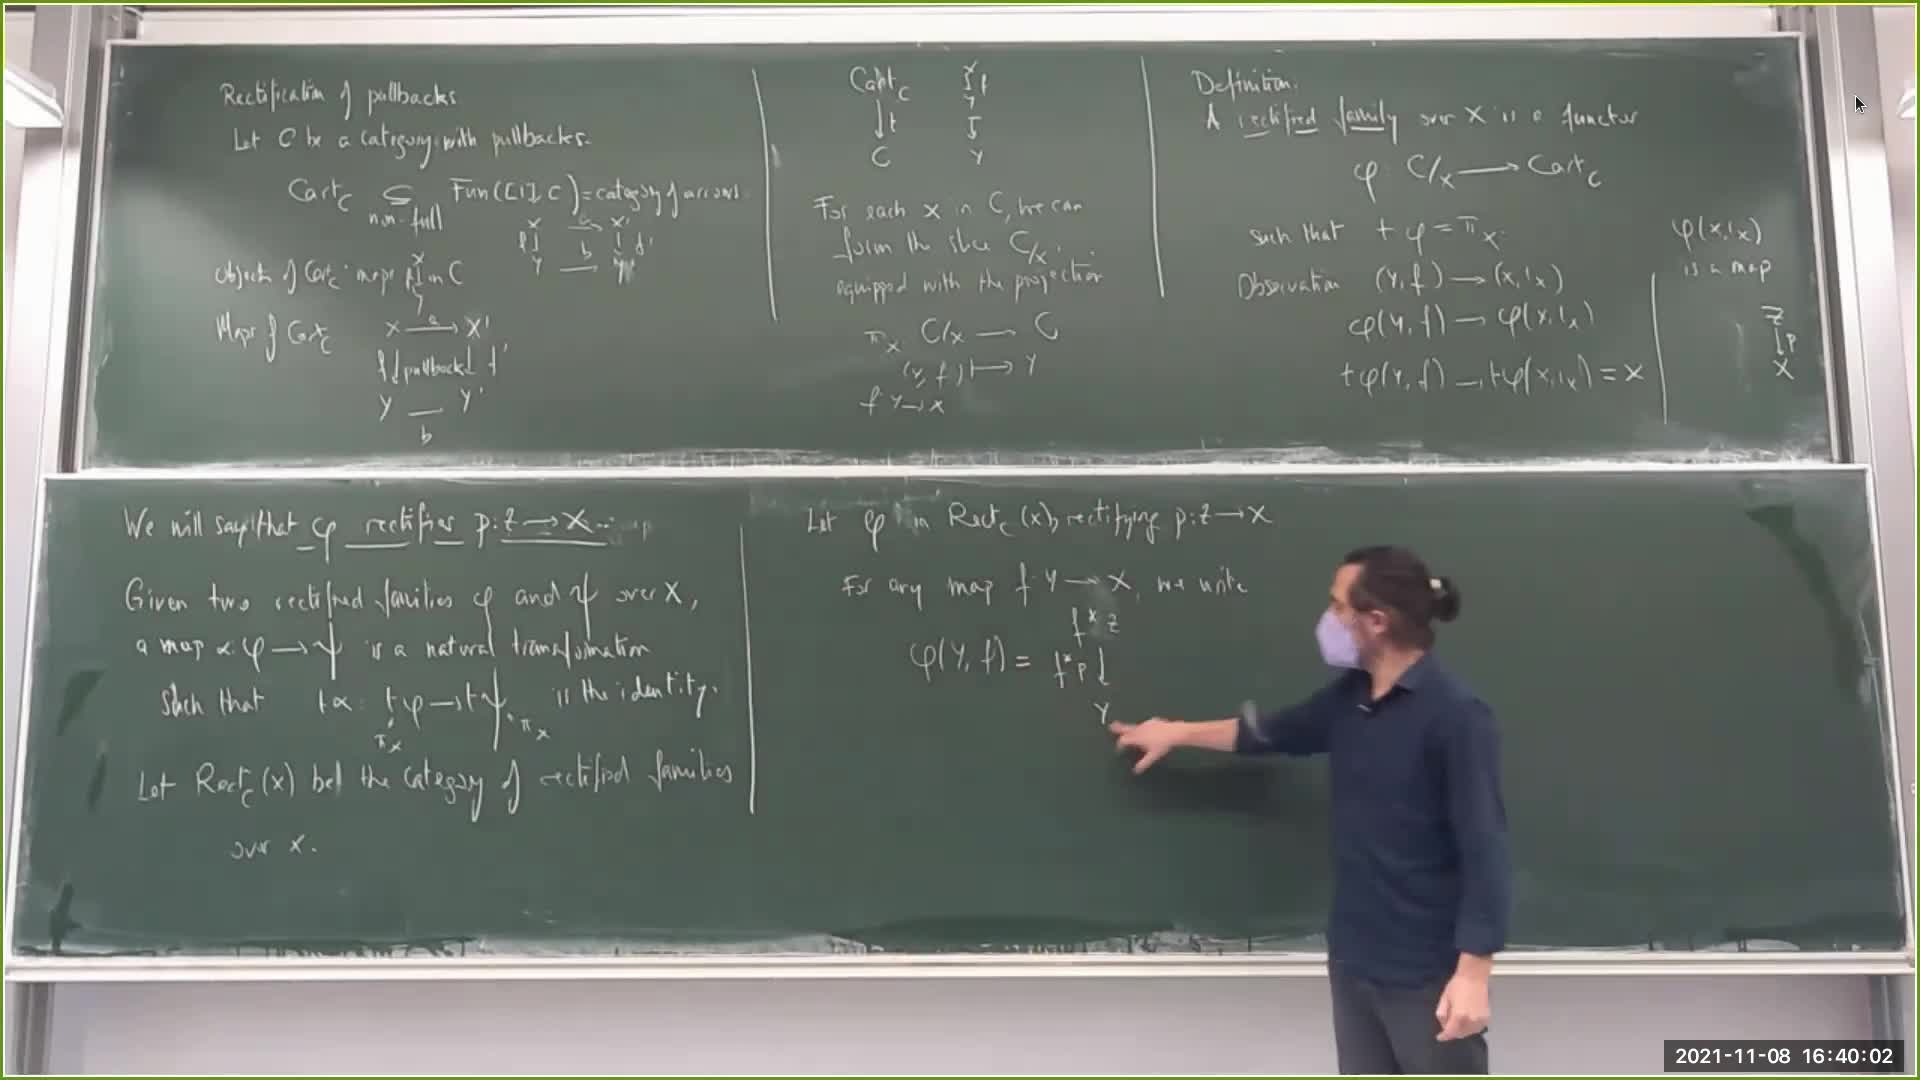 Rectification of pullbacks
Let C be a category with pullbacks.
Cart_C ⊆ Fun([1], C) = category of arrows
non-full
X →a X'
f ↓ ↓ f'
Y →b Y'
objects of Cart_C: maps X f↓ Y in C
Maps of Cart_C
X →a X'
f ↓ pullback ↓ f'
Y → Y'
b
Cart_C
↓ t
C
X
↓ f
Y
↧
Y
For each X in C, we can
form the slice C/X,
equipped with the projection
π_X C/X → C
(Y, f) ↦ Y
f: Y → X
Definition.
A rectified family over X is a functor
φ: C/X → Cart_C
such that tφ = π_X.
Observation (Y, f) → (X, 1_X)
φ(Y, f) → φ(X, 1_X)
tφ(Y, f) → tφ(X, 1_X) = X
φ(X, 1_X)
is a map
Z
↓ p
X
We will say that φ rectifies p: Z → X.
Given two rectified families φ and ψ over X,
a map α: φ → ψ is a natural transformation
such that tα: tφ → tψ is the identity.
π_X π_X
Let Rect_C(X) be the category of rectified families
over X.
Let φ in Rect_C(X), rectifying p: Z → X
For any map f: Y → X, we write
φ(Y, f) =
f*Z
f*p ↓
Y
2021-11-08 16:40:02